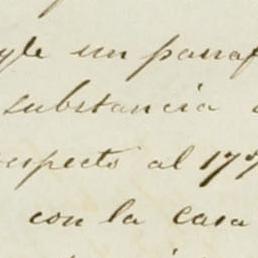 un parraf
substancia
especto al 17
con la casa